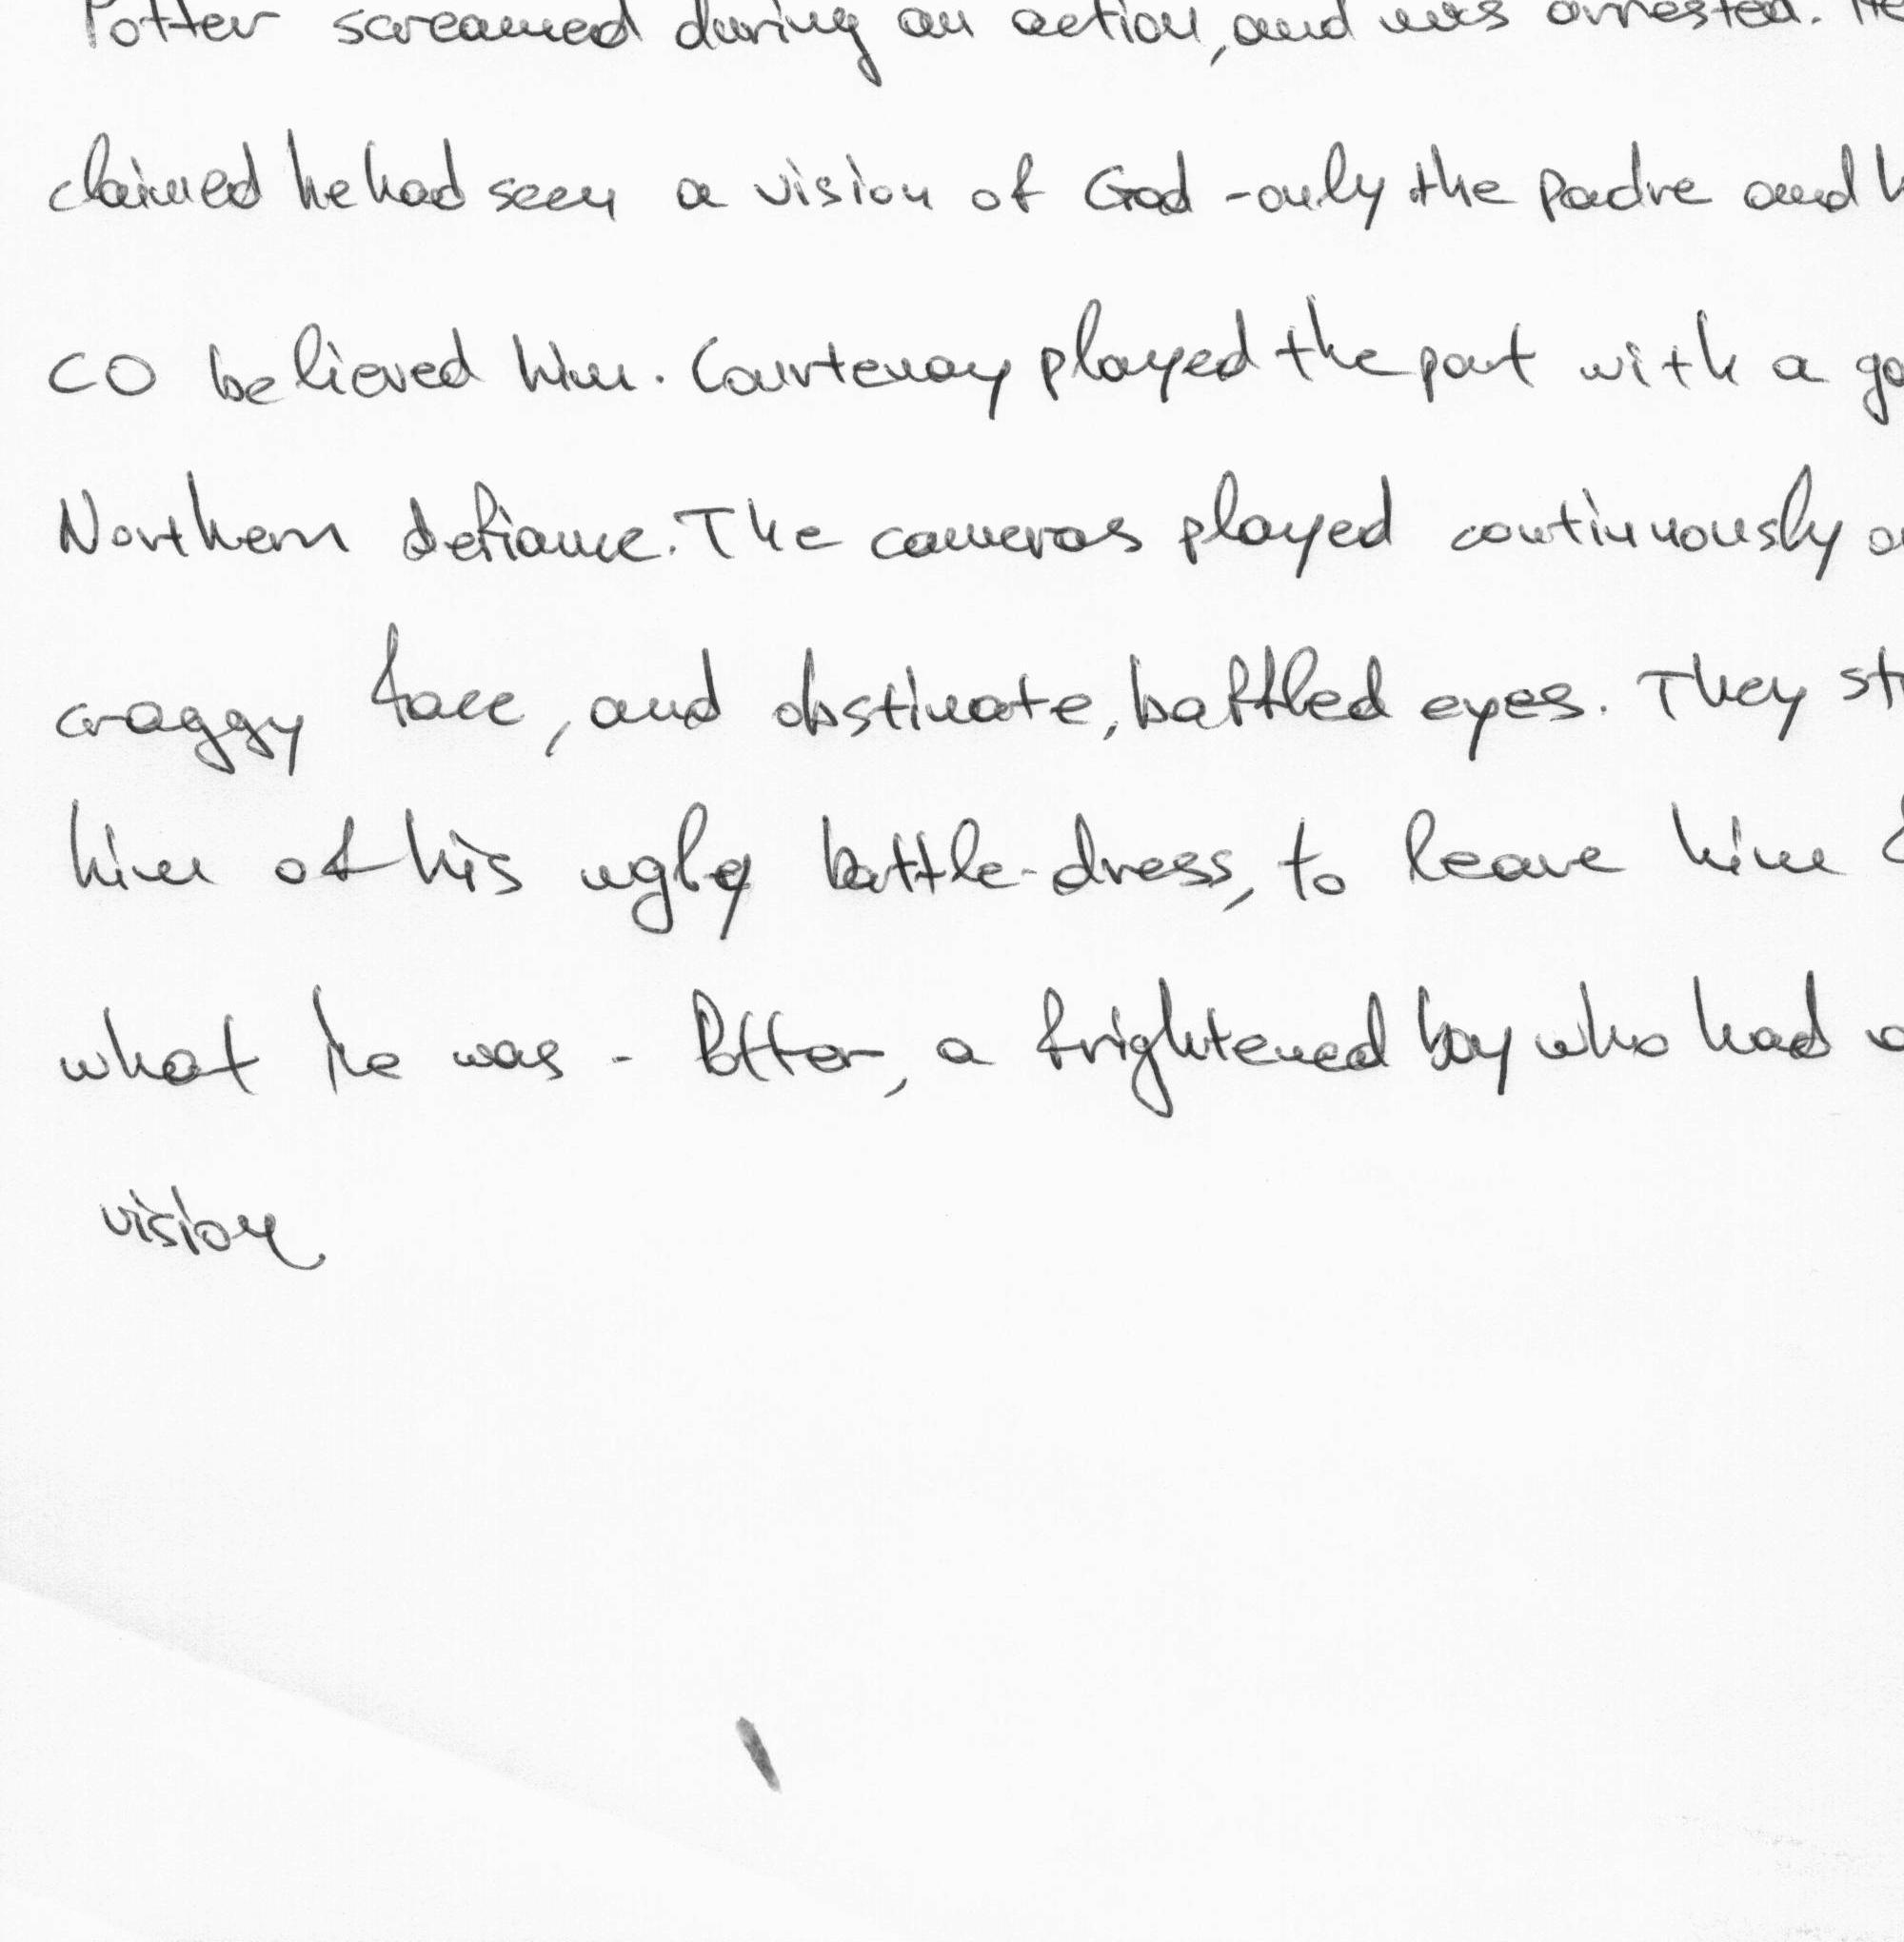 Potter screamed during an action, and was arrested. He
claimed he had seen a vision of God - only the padre and
CO believed him. Courtenay played the part with a
Northern defiance. The cameras played continuously
craggy face, and obstinate, baffled eyes. They
him of his ugly battle-dress, to leave him
what he was - Potter, a frightened boy who had
vision